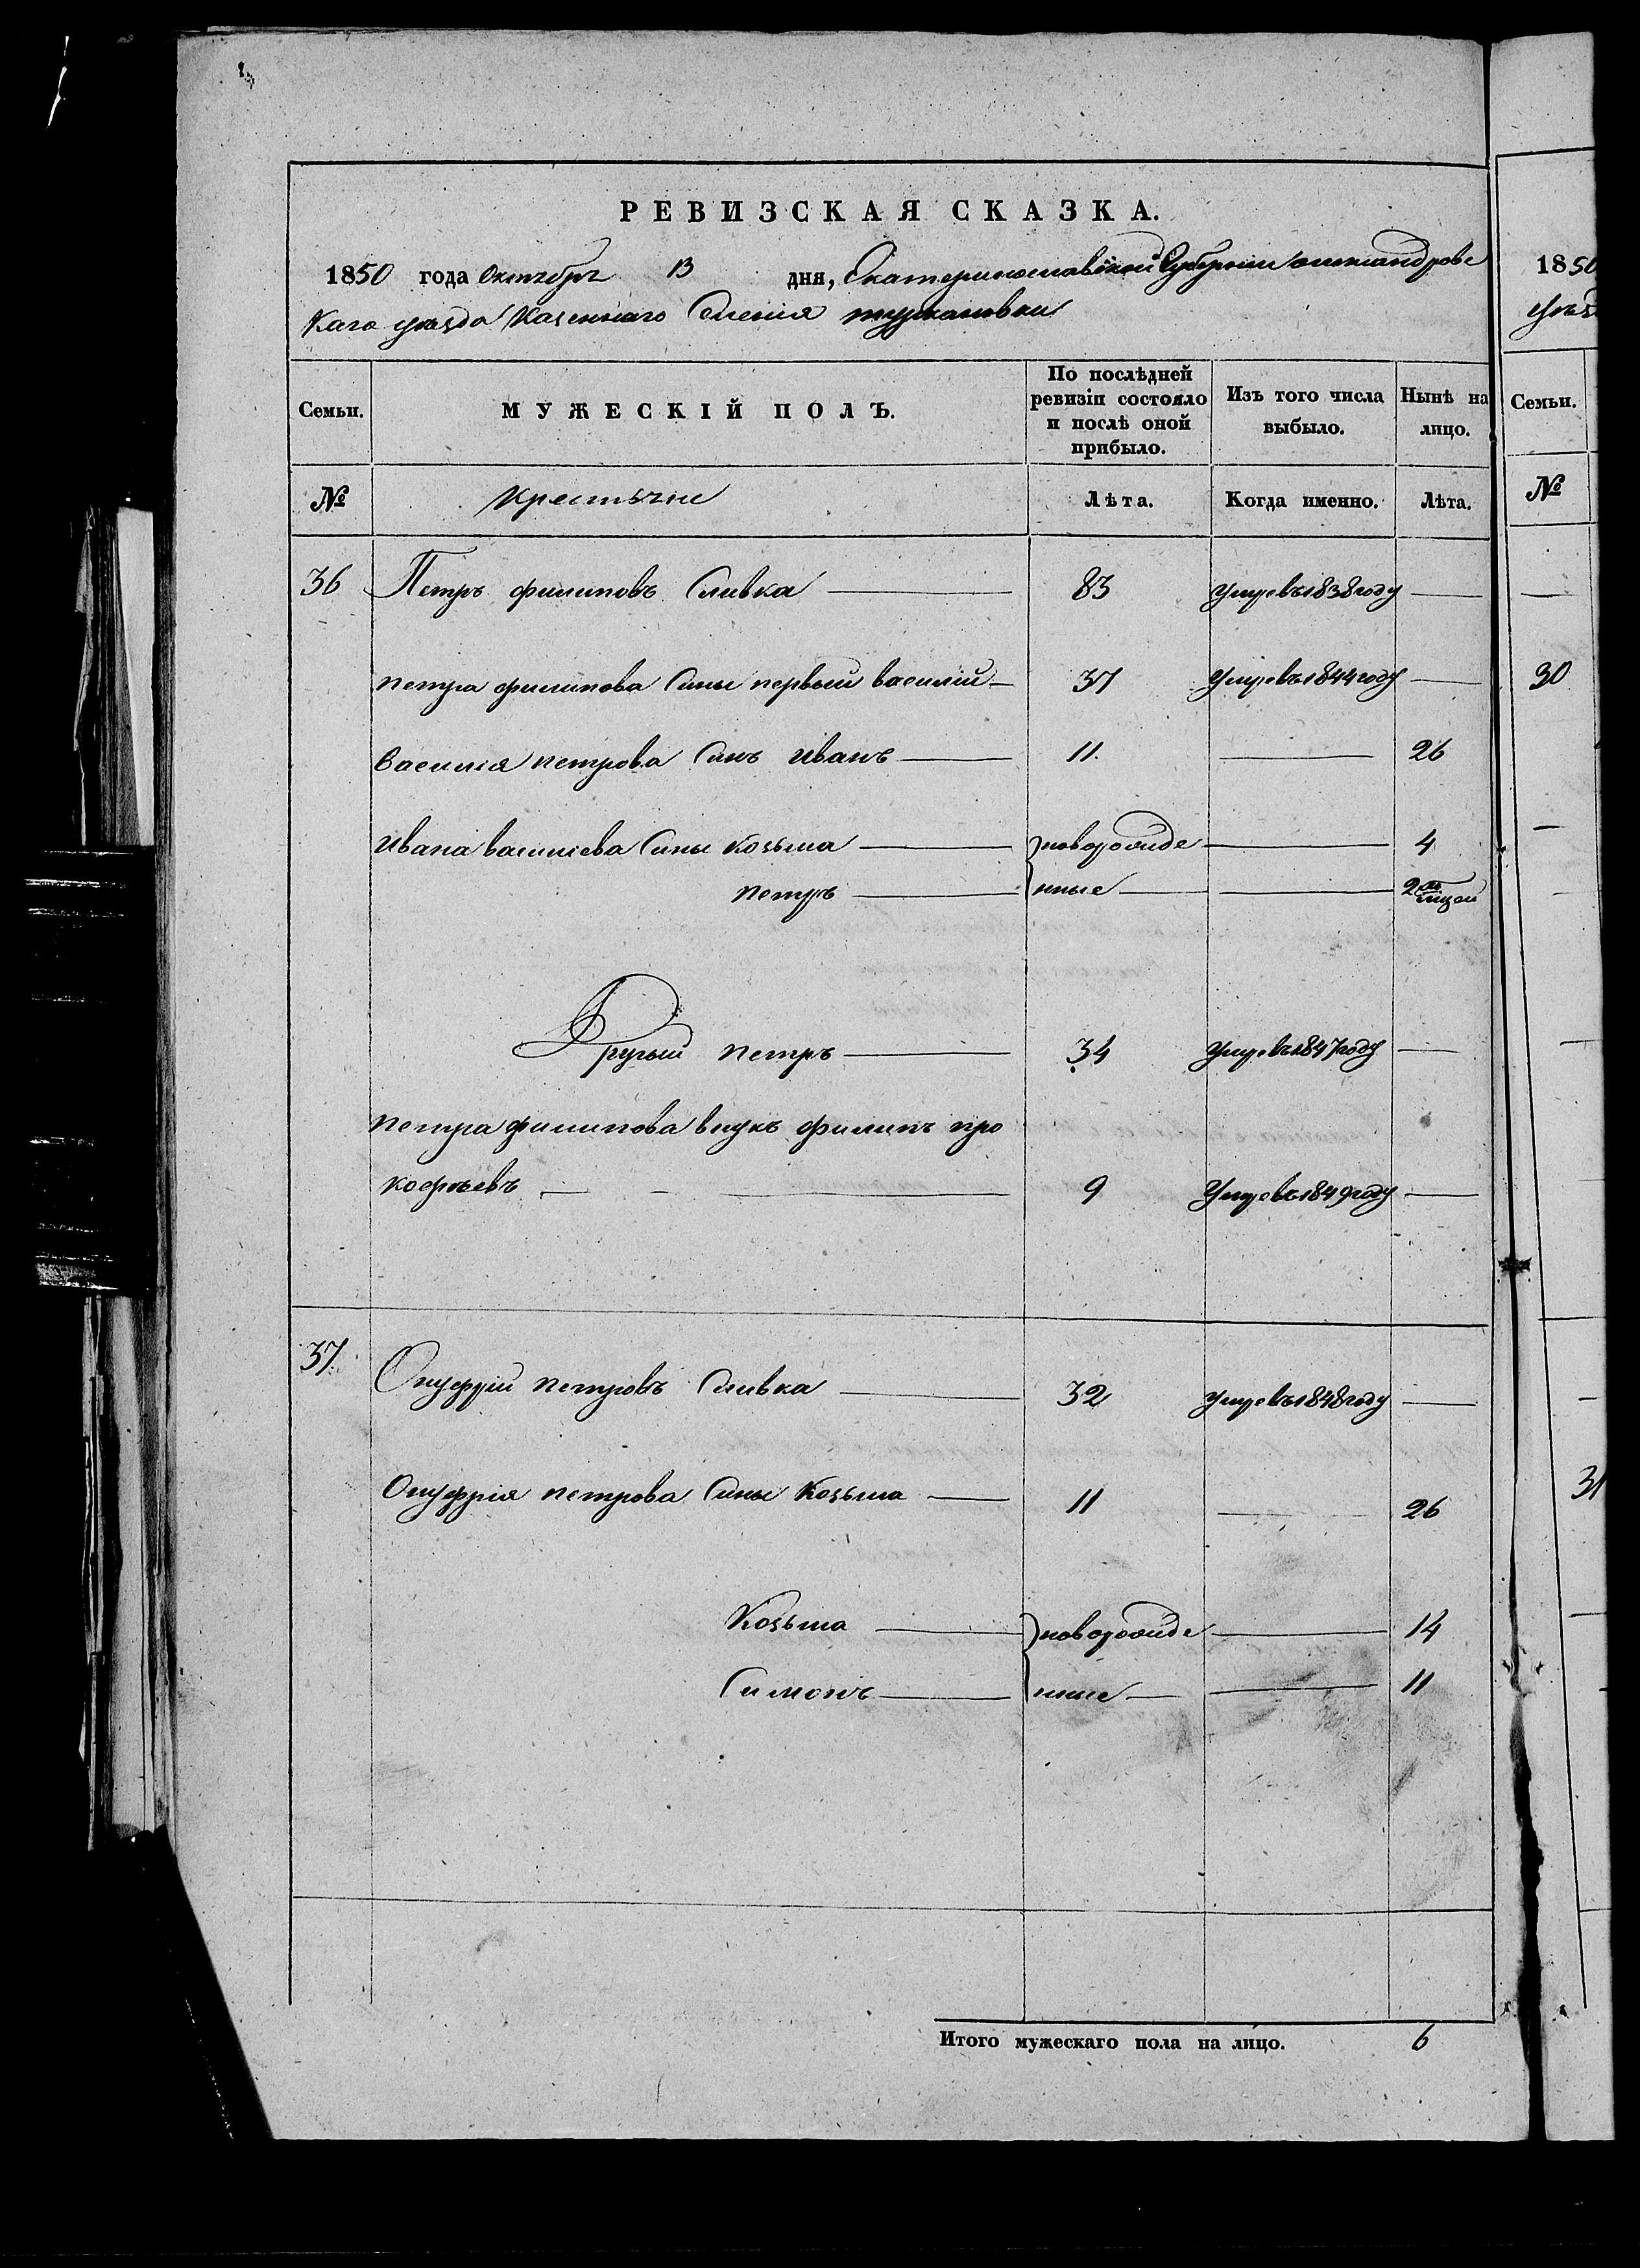 РЕВИЗСКАЯ СКАЗКА.
1850 года Октября 13 дня, Екатеринославской Губернии Александровс
каго уезда Казеннаго Селения туркановки
1850
уезд
Семьи. МУЖЕСКІЙ ПОЛЪ. По послѣдней ревизіи состояло и послѣ оной прибыло. Изъ того числа выбыло. Нынѣ на лицо. Семьи.
№ крестьяне Лѣта. Когда именно. Лѣта. №
36 Петръ филиповъ Сливка 83 умре въ 1838 году
петра филипова Сины первый василий 37 умре въ 1844 году 30
василия петрова Синъ иванъ 11. 26
ивана василиева Сины козьма новорожде 4
петръ нные 2 м̃сяцей
Другый петръ 34 умре въ 1847 году
петра филипова внукъ филипъ про
кофьевъ 9 умре въ 1849 году
37. Онуфрий петровъ Сливка 32 умре въ 1848 году
Онуфрия петрова Сины Козьма 11 26
31
Козьма новорожде 14
Симонъ нные 11
Итого мужескаго пола на лицо. 6